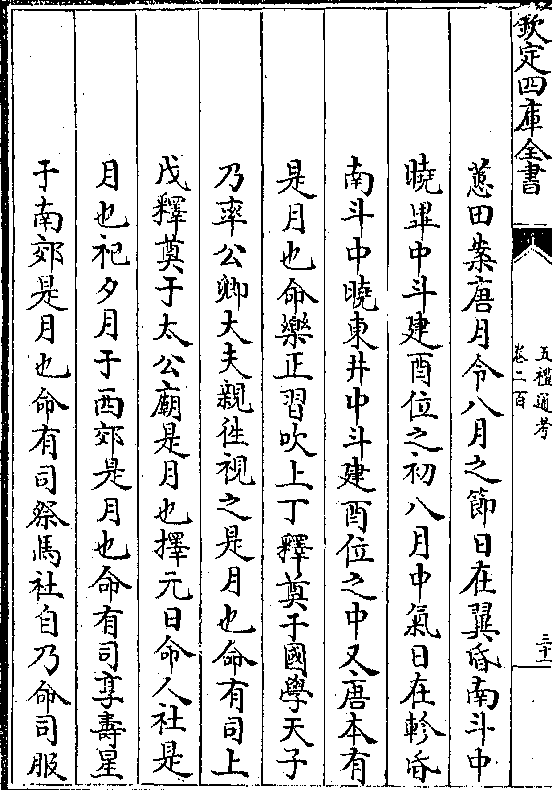 欽定四庫全書
五禮通考
卷二百
三十一
蕙田案唐月令八月之節日在翼昏南斗中
曉畢中斗建酉位之初八月中氣日在軫昏
南斗中曉東井中斗建酉位之中又唐本有
是月也命樂正習吹上丁釋奠于國學天子
乃率公卿大夫親往視之是月也命有司上
戊釋奠于太公廟是月也擇元日命人社是
月也祀夕月于西郊是月也命有司享壽星
于南郊是月也命有司祭馬社自乃命司服